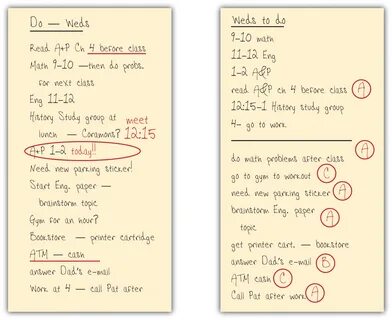 Do — Weds
Read A+P Ch 4 before class
Math 9-10 — then do probs.
for next class
Eng 11-12
History Study group at meet
lunch — Coramons? 12:15
A+P 1-2 today!!
Need new parking sticker!
Start Eng. paper —
brainstorm topic
Gym for an hour?
Bookstore — printer cartridge
ATM — cash
answer Dad's e-mail
Work at 4 — call Pat after
Weds to do
9-10 math
11-12 Eng
1-2 A&P
read A&P ch 4 before class A
12:15-1 History study group
4- go to work
do math problems after class A
go to gym to workout C
need new parking sticker A
brainstorm Eng. paper A
topic
get printer cart. — bookstore
answer Dad's e-mail B
ATM cash C
Call Pat after work A